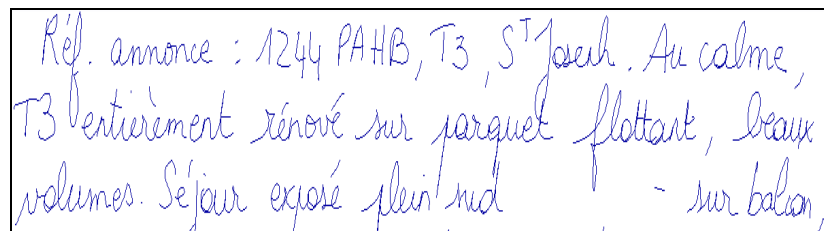 Réf. annonce : 1244 PAHB, T3, Sᵀ Joseph. Au calme,
T3 entièrement rénové sur parquet flottant, beaux
volumes. Séjour exposé plein sud - sur balcon,